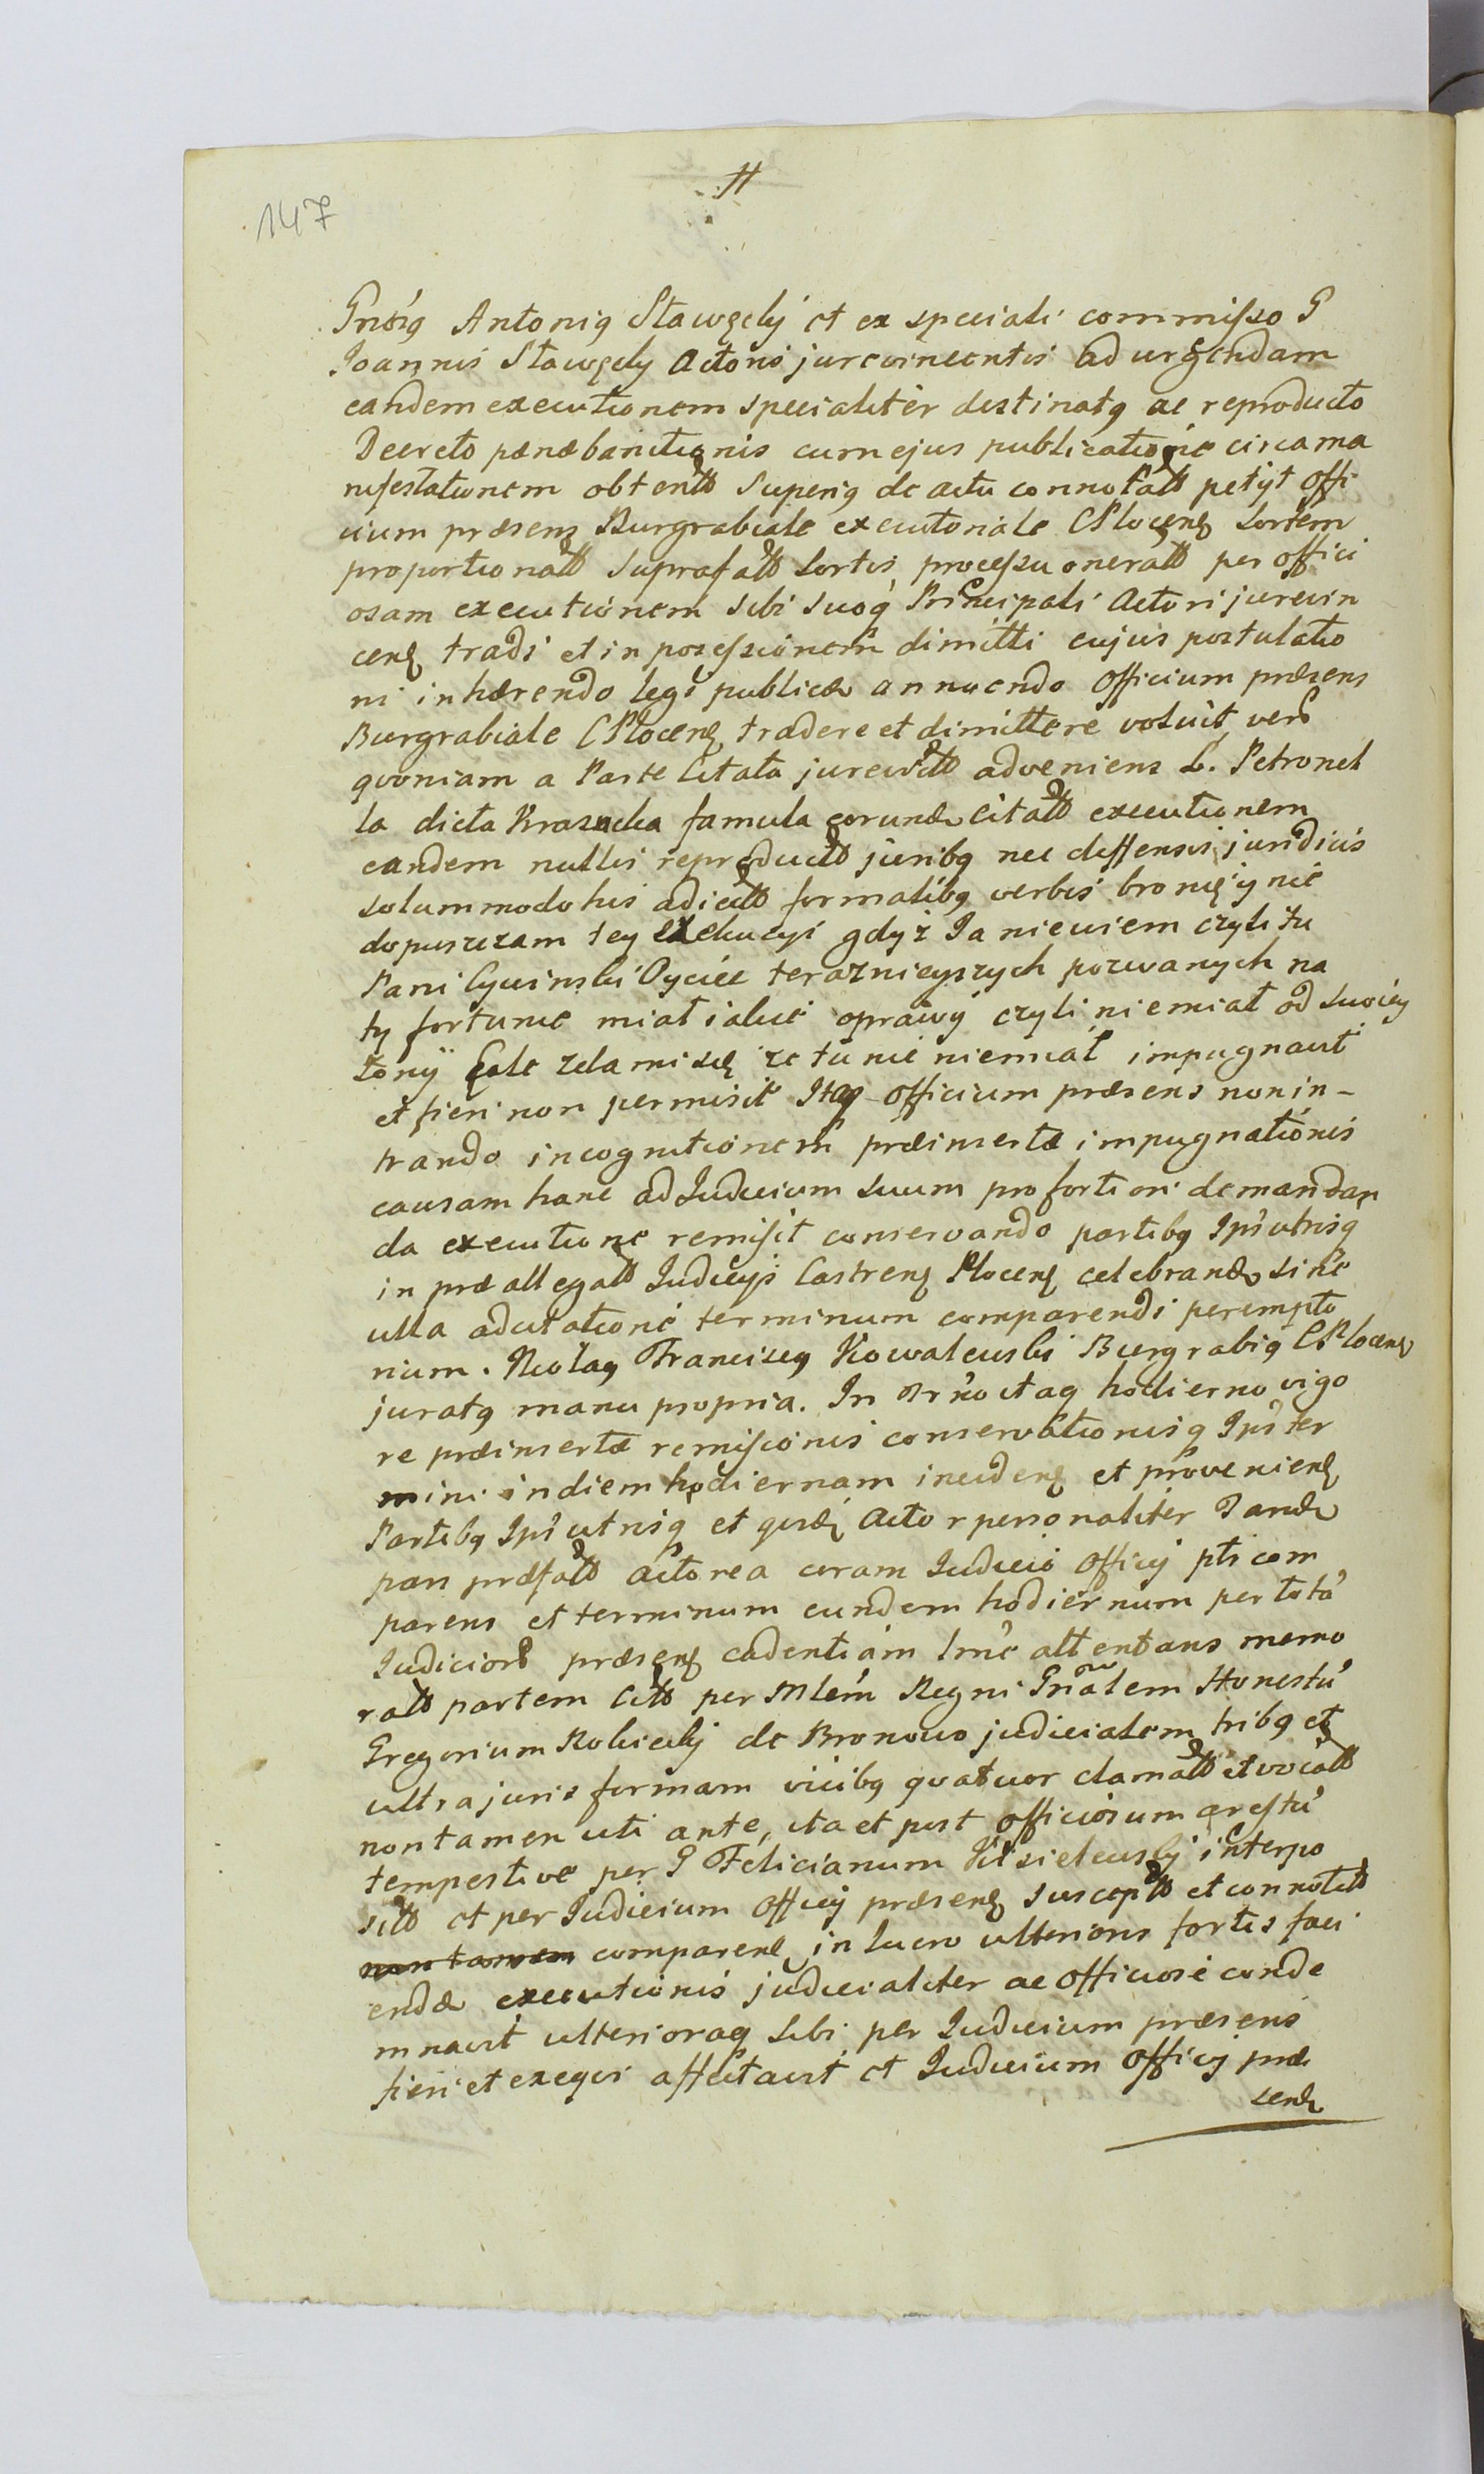 147
Gnosg Antonig Sławęcky et ex speciali commisso G
Joannis Sławęcky Actoris jurevincentis ad urgendam
eandem executionem specialiter destinatg ac reproducto
Decreto pænæ bannitionis cum ejus publicatione circa ma
nifestationem obtent Superig de actu connotat petijt Offi
cium præsens Burgrabiale executoriale CPlocen Sortem
proportionat Suprafat Sortis processu onerat per offici
osam executionem sibi suoq Principali Actori jurevin
cen tradi et in possessionem dimitti cujus postulatio
ni inhærendo legi publicæ annuendo Officium præsens
Burgrabiale CPlocen tradere et dimittere voluit, vero
quoniam a Parte Citata jurevict adveniens L. Petronel
la dicta Krasucka famula eorund citat executionem
eandem nullis reproduct juribg nec deffensis juridicis
solummodo his adject formalibg verbis bronię y nie
dopuszczam tey Exekucyi gdyż Ja niewiem czyli tu
Pani Cywinski Oyciec teraznieyszych pozwanych na
ty fortunie miał iakie oprawy czyli niemiał od Swoiey
żony ale zda mi się że tu nie niemiał impugnavit
et fieri non permisit Itaq Officium præsens non in-
trando in cognitionem præinsertæ impugnationis
causam hanc ad Judicium suum pro fortiori demandan
da executione remisit conservando partibg Ips utrisq
in præallegat Judicijs Castren Plocen celebrand sine
ulla adcitatione terminum comparendi perempto
rium. Franciscg Kowalewski Burgrabig CPlocen
juratg manu propria. In Trno itaq hodierno vigo
re præinsertæ remissionis conservationisq Ips ter
mini in diem hodiernam inciden et provenien
Partibg Ips utrisq et quid Actor personaliter Tand
pars præfat actorea coram Judicio Officij pti com
parens et terminum eundem hodiernum per totã
Judicior præsen cadentiam lme attentans memo
rat partem Cit per Mlem Regni Gnãlem Honestũ
Gregorium Robicky de Bronowo judicialem tribg et
ultra juris formam vicibg quatuor clamat et vocat
non tamen uti ante, ita et post officiosum arestũ
tempestive per G Felicianum Kisielewsky interpo
sit et per Judicium Officij præsen suscept et connotat
non tamen comparen in lucro ulterioris fortis faci
endæ executionis judicialiter ac officiose conde
mnavit ulterioraq Sibi per Judicium præsens
fieri et exequi affectavit et Judicium Officij præ
sens